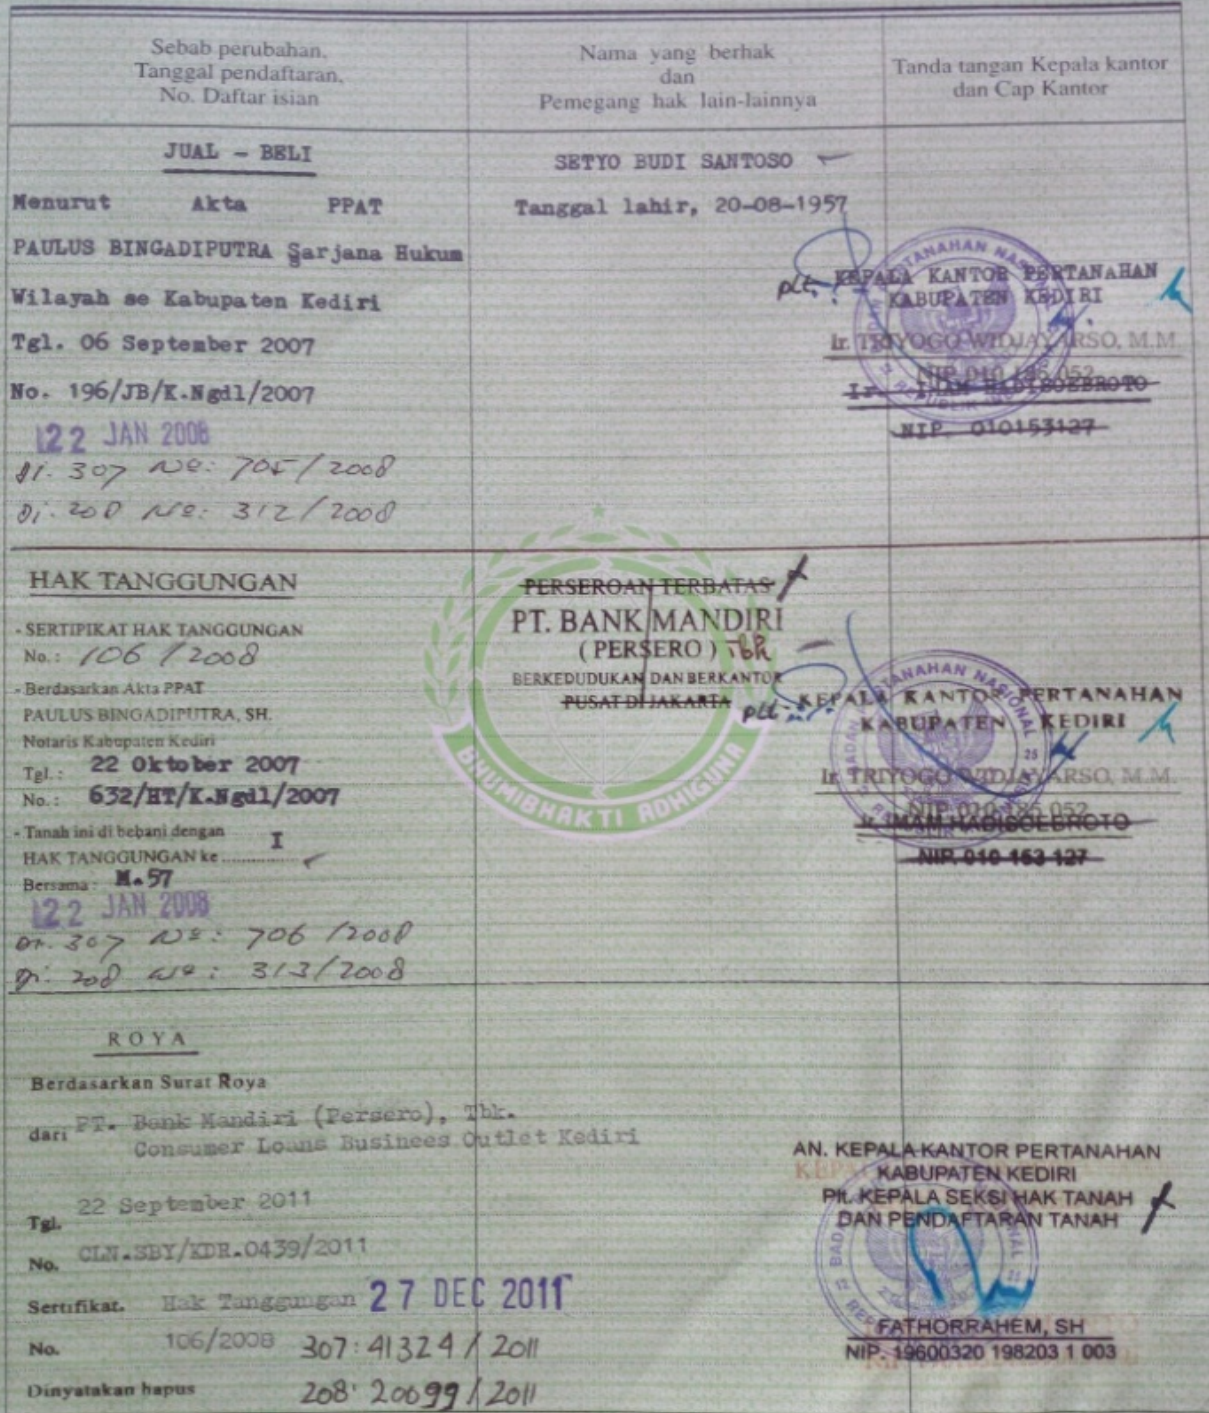 Sebab perubahan,
Tanggal pendaftaran,
No. Daftar isian
Nama yang berhak
dan
Pemegang hak lain-lainnya
Tanda tangan Kepala kantor
dan Cap Kantor
JUAL - BELI
Menurut Akta PPAT
PAULUS BINGADIPUTRA Sarjana Hukum
Wilayah se Kabupaten Kediri
Tgl. 06 September 2007
No. 196/JB/K.Ngdl/2007
22 JAN 2008
Di. 307 No: 705/2008
Di. 208 No: 312/2008
SETYO BUDI SANTOSO
Tanggal lahir, 20-08-1957
plt. KEPALA KANTOR PERTANAHAN
KABUPATEN KEDIRI
Ir. TRIYOGO WIDJAYARSO, M.M.
NIP 010 185 052
Ir. IMAM HADISOEBROTO
NIP. 010153127
HAK TANGGUNGAN
- SERTIPIKAT HAK TANGGUNGAN
No.: 106 / 2008
- Berdasarkan Akta PPAT
PAULUS BINGADIPUTRA, SH.
Notaris Kabupaten Kediri
Tgl.: 22 Oktober 2007
No.: 632/HT/K.Ngdl/2007
- Tanah ini di bebani dengan
HAK TANGGUNGAN ke .............. I
Bersama: M.57
22 JAN 2008
Di. 307 No: 706 /2008
Di. 208 No: 313/2008
PERSEROAN TERBATAS
PT. BANK MANDIRI
( PERSERO ) Tbk
BERKEDUDUKAN DAN BERKANTOR
PUSAT DI JAKARTA
BHUMIBHAKTI ADHIGUNA
plt. KEPALA KANTOR PERTANAHAN
KABUPATEN KEDIRI
Ir. TRIYOGO WIDJAYARSO, M.M.
NIP 010 185 052
Ir. IMAM HADISOEBROTO
NIP. 010 153 127
ROYA
Berdasarkan Surat Roya
dari PT. Bank Mandiri (Persero), Tbk.
Consumer Loans Businees Outlet Kediri
Tgl. 22 September 2011
No. CLN.SBY/KDR.0439/2011
Sertifikat. Hak Tanggungan 27 DEC 2011
No. 106/2008 307: 41324 / 2011
Dinyatakan hapus 208: 20099 / 2011
AN. KEPALA KANTOR PERTANAHAN
KABUPATEN KEDIRI
Plt. KEPALA SEKSI HAK TANAH
DAN PENDAFTARAN TANAH
FATHORRAHEM, SH
NIP. 19600320 198203 1 003